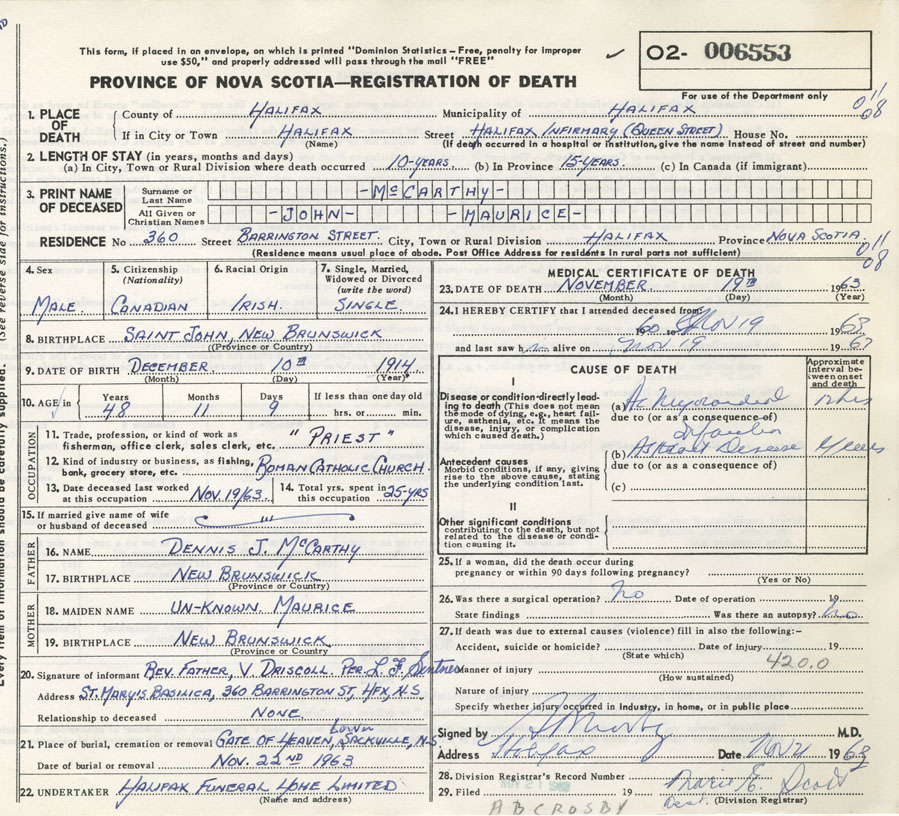 This form, if placed in an envelope, on which is printed "Dominion Statistics – Free, penalty for improper
use $50," and properly addressed will pass through the mail "FREE"
✓
O2- 006553
PROVINCE OF NOVA SCOTIA—REGISTRATION OF DEATH
For use of the Department only
1. PLACE OF DEATH
County of HALIFAX Municipality of HALIFAX
011
08
If in City or Town HALIFAX Street HALIFAX INFIRMARY (QUEEN STREET) House No.
(Name) (If death occurred in a hospital or institution, give the name instead of street and number)
2. LENGTH OF STAY (in years, months and days)
(a) In City, Town or Rural Division where death occurred 10-YEARS (b) In Province 15-YEARS. (c) In Canada (if immigrant)
3. PRINT NAME OF DECEASED
Surname or Last Name -McCARTHY-
All Given or Christian Names -JOHN- -MAURICE-
RESIDENCE No 360 Street BARRINGTON STREET. City, Town or Rural Division HALIFAX Province NOVA SCOTIA.
011
08
(Residence means usual place of abode. Post Office Address for residents in rural parts not sufficient)
4. Sex
MALE.
5. Citizenship (Nationality)
CANADIAN
6. Racial Origin
IRISH.
7. Single, Married, Widowed or Divorced (write the word)
SINGLE.
8. BIRTHPLACE SAINT JOHN, NEW BRUNSWICK
(Province or Country)
9. DATE OF BIRTH DECEMBER 10TH 1914
(Month) (Day) (Year)
10. AGE in Years Months Days If less than one day old
48 11 9 hrs. or min.
OCCUPATION
11. Trade, profession, or kind of work as
fisherman, office clerk, sales clerk, etc. "PRIEST"
12. Kind of industry or business, as fishing,
bank, grocery store, etc. ROMAN CATHOLIC CHURCH.
13. Date deceased last worked at this occupation NOV. 19/63.
14. Total yrs. spent in this occupation 25-YRS
15. If married give name of wife
or husband of deceased
FATHER
16. NAME DENNIS J. McCARTHY
17. BIRTHPLACE NEW BRUNSWICK
(Province or Country)
MOTHER
18. MAIDEN NAME UN-KNOWN MAURICE
19. BIRTHPLACE NEW BRUNSWICK
(Province or Country)
20. Signature of informant REV. FATHER, V. DRISCOLL. PER L. F.
Address ST. MARYIS BASILICA, 360 BARRINGTON ST. HFX, N.S.
Relationship to deceased NONE.
Lower
21. Place of burial, cremation or removal GATE OF HEAVEN, SACKVILLE, N.S
Date of burial or removal NOV. 22ND 1963
22. UNDERTAKER HALIFAX FUNERAL HOME LIMITED
(Name and address)
MEDICAL CERTIFICATE OF DEATH
23. DATE OF DEATH NOVEMBER 19TH 1963
(Month) (Day) (Year)
24. I HEREBY CERTIFY that I attended deceased from
1960 to NOV 19 1963
and last saw him alive on Nov 19 19
CAUSE OF DEATH
Approximate interval between onset and death
I
Disease or condition directly leading to death (This does not mean the mode of dying, e.g., heart failure, asthenia, etc. It means the disease, injury, or complication which caused death.)
(a) Ac Myocardial hrs
due to (or as a consequence of)
Infarction
Antecedent causes
Morbid conditions, if any, giving rise to the above cause, stating the underlying condition last.
(b) Disease Years
due to (or as a consequence of)
(c)
II
Other significant conditions
contributing to the death, but not related to the disease or condition causing it.
25. If a woman, did the death occur during
pregnancy or within 90 days following pregnancy?
(Yes or No)
26. Was there a surgical operation? No Date of operation 19
State findings Was there an autopsy? No
27. If death was due to external causes (violence) fill in also the following:–
Accident, suicide or homicide? Date of injury 19
(State which)
420.0
Manner of injury
(How sustained)
Nature of injury
Specify whether injury occurred in Industry, in home, or in public place
Signed by M.D.
Address Halifax Date Nov 21 1963
28. Division Registrar's Record Number
NOV 21 1963
29. Filed 19 Marie E. Scott
Dept. (Division Registrar)
A B CROSBY
(See reverse side for instructions.)
Every item of information should be carefully supplied.